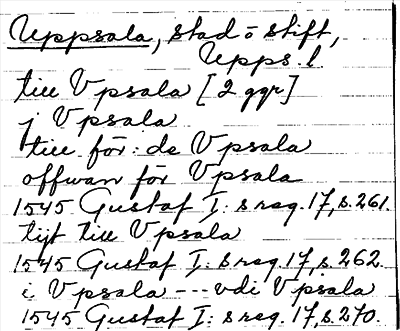 Uppsala, stad o stift,
Upps. l.
till Vpsala [2 ggr]
j Vpsala
till för: de Vpsala
offwan för Vpsala
1545 Gustaf I:s reg. 17, s. 261.
tijt till Vpsala
1545 Gustaf I:s reg. 17, s. 262.
i Vpsala --- vdi Vpsala
1545 Gustaf I:s reg. 17, s. 270.